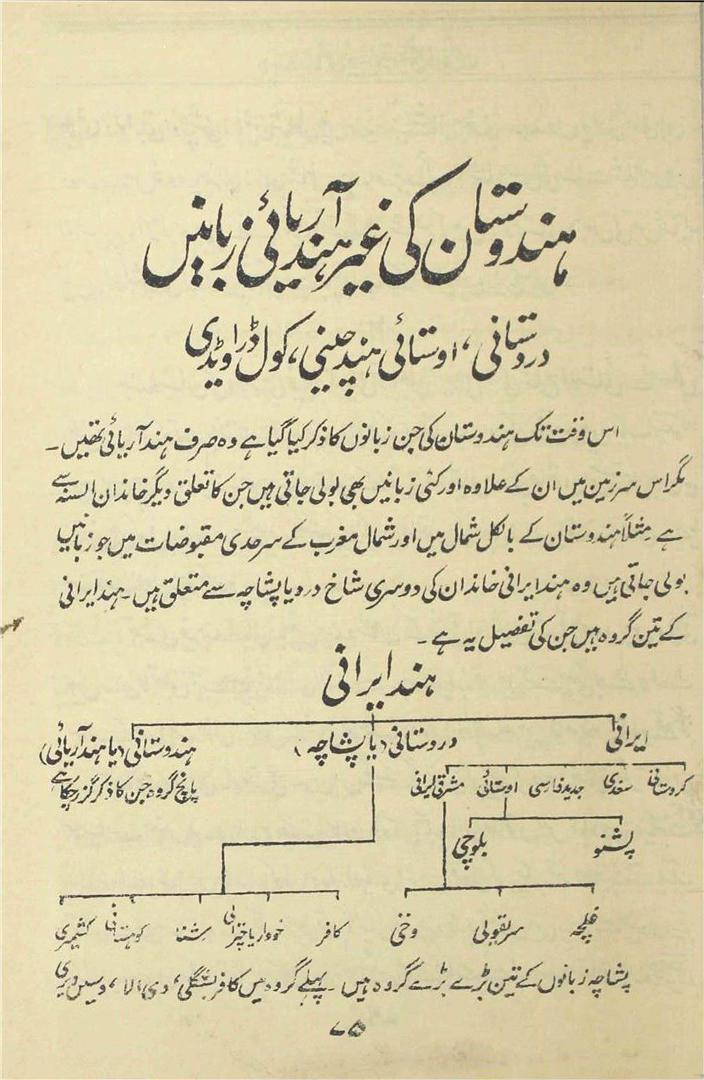 ہندوستان کی غیر ہند آریائی زبانیں
دردستانی، اوستائی ہند چینی، کول ڈراویڈی
اس وقت تک ہندوستان کی جن زبانوں کا ذکر کیا گیا ہے وہ صرف ہند آریائی تھیں۔
مگر اس سرزمین میں ان کے علاوہ اور کئی زبانیں بھی بولی جاتی ہیں جن کا تعلق دیگر خاندان السنہ سے
ہے مثلاً ہندوستان کے بالکل شمال میں اور شمال مغرب کے سرحدی مقبوضات میں جو زبانیں
بولی جاتی ہیں وہ ہند ایرانی خاندان کی دوسری شاخ درد یا پشاچہ سے متعلق ہیں۔ ہند ایرانی
کے تین گروہ ہیں جن کی تفصیل یہ ہے۔
ہند ایرانی
ایرانی دردستانی (یا پشاچہ) ہندوستانی (یا ہند آریائی)
پانچ گروہ جن کا ذکر گزر چکا ہے
کردستانی سغدی جدید فارسی اوستائی مشرقی ایرانی
پشتو بلوچی
غلچہ سریقولی وخی کافر خووار یا چترالی شنا کوہستانی کشمیری
پشاچہ زبانوں کے تین بڑے بڑے گروہ ہیں۔ پہلے گروہ میں کافر بشگلی، وی الا، ویسن ویری
۷۵